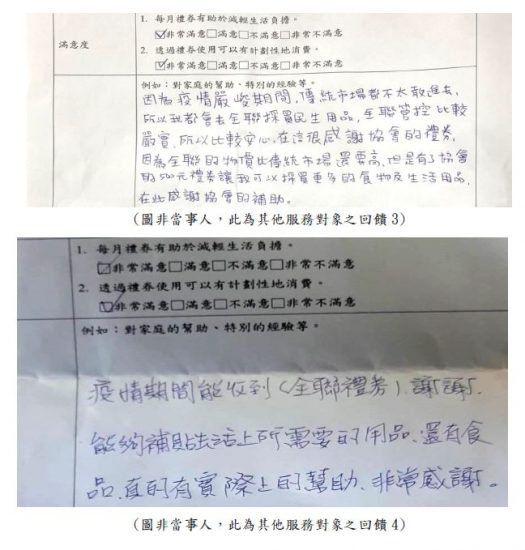 滿意度
1. 每月禮券有助於減輕生活負擔。
☑非常滿意□滿意□不滿意□非常不滿意
2. 透過禮券使用可以有計劃性地消費。
☑非常滿意□滿意□不滿意□非常不滿意
例如：對家庭的幫助、特別的經驗等。
因為疫情嚴峻期間，傳統市場都不太敢進去，
所以我都會去全聯採買民生用品，全聯管控比較
嚴實，所以比較安心，在這很感謝協會的禮券，
因為全聯的物價比傳統市場還要高，但是有了協會
的500元禮券讓我可以採買更多的食物及生活用品，
在此感謝協會的補助。
(圖非當事人，此為其他服務對象之回饋 3)
1. 每月禮券有助於減輕生活負擔。
☑非常滿意□滿意□不滿意□非常不滿意
2. 透過禮券使用可以有計劃性地消費。
☑非常滿意□滿意□不滿意□非常不滿意
例如：對家庭的幫助、特別的經驗等。
疫情期間能收到(全聯禮券)，謝謝，
能夠補貼生活上所需要的用品、還有食
品，真的有實際上的幫助、非常感謝。
(圖非當事人，此為其他服務對象之回饋 4)